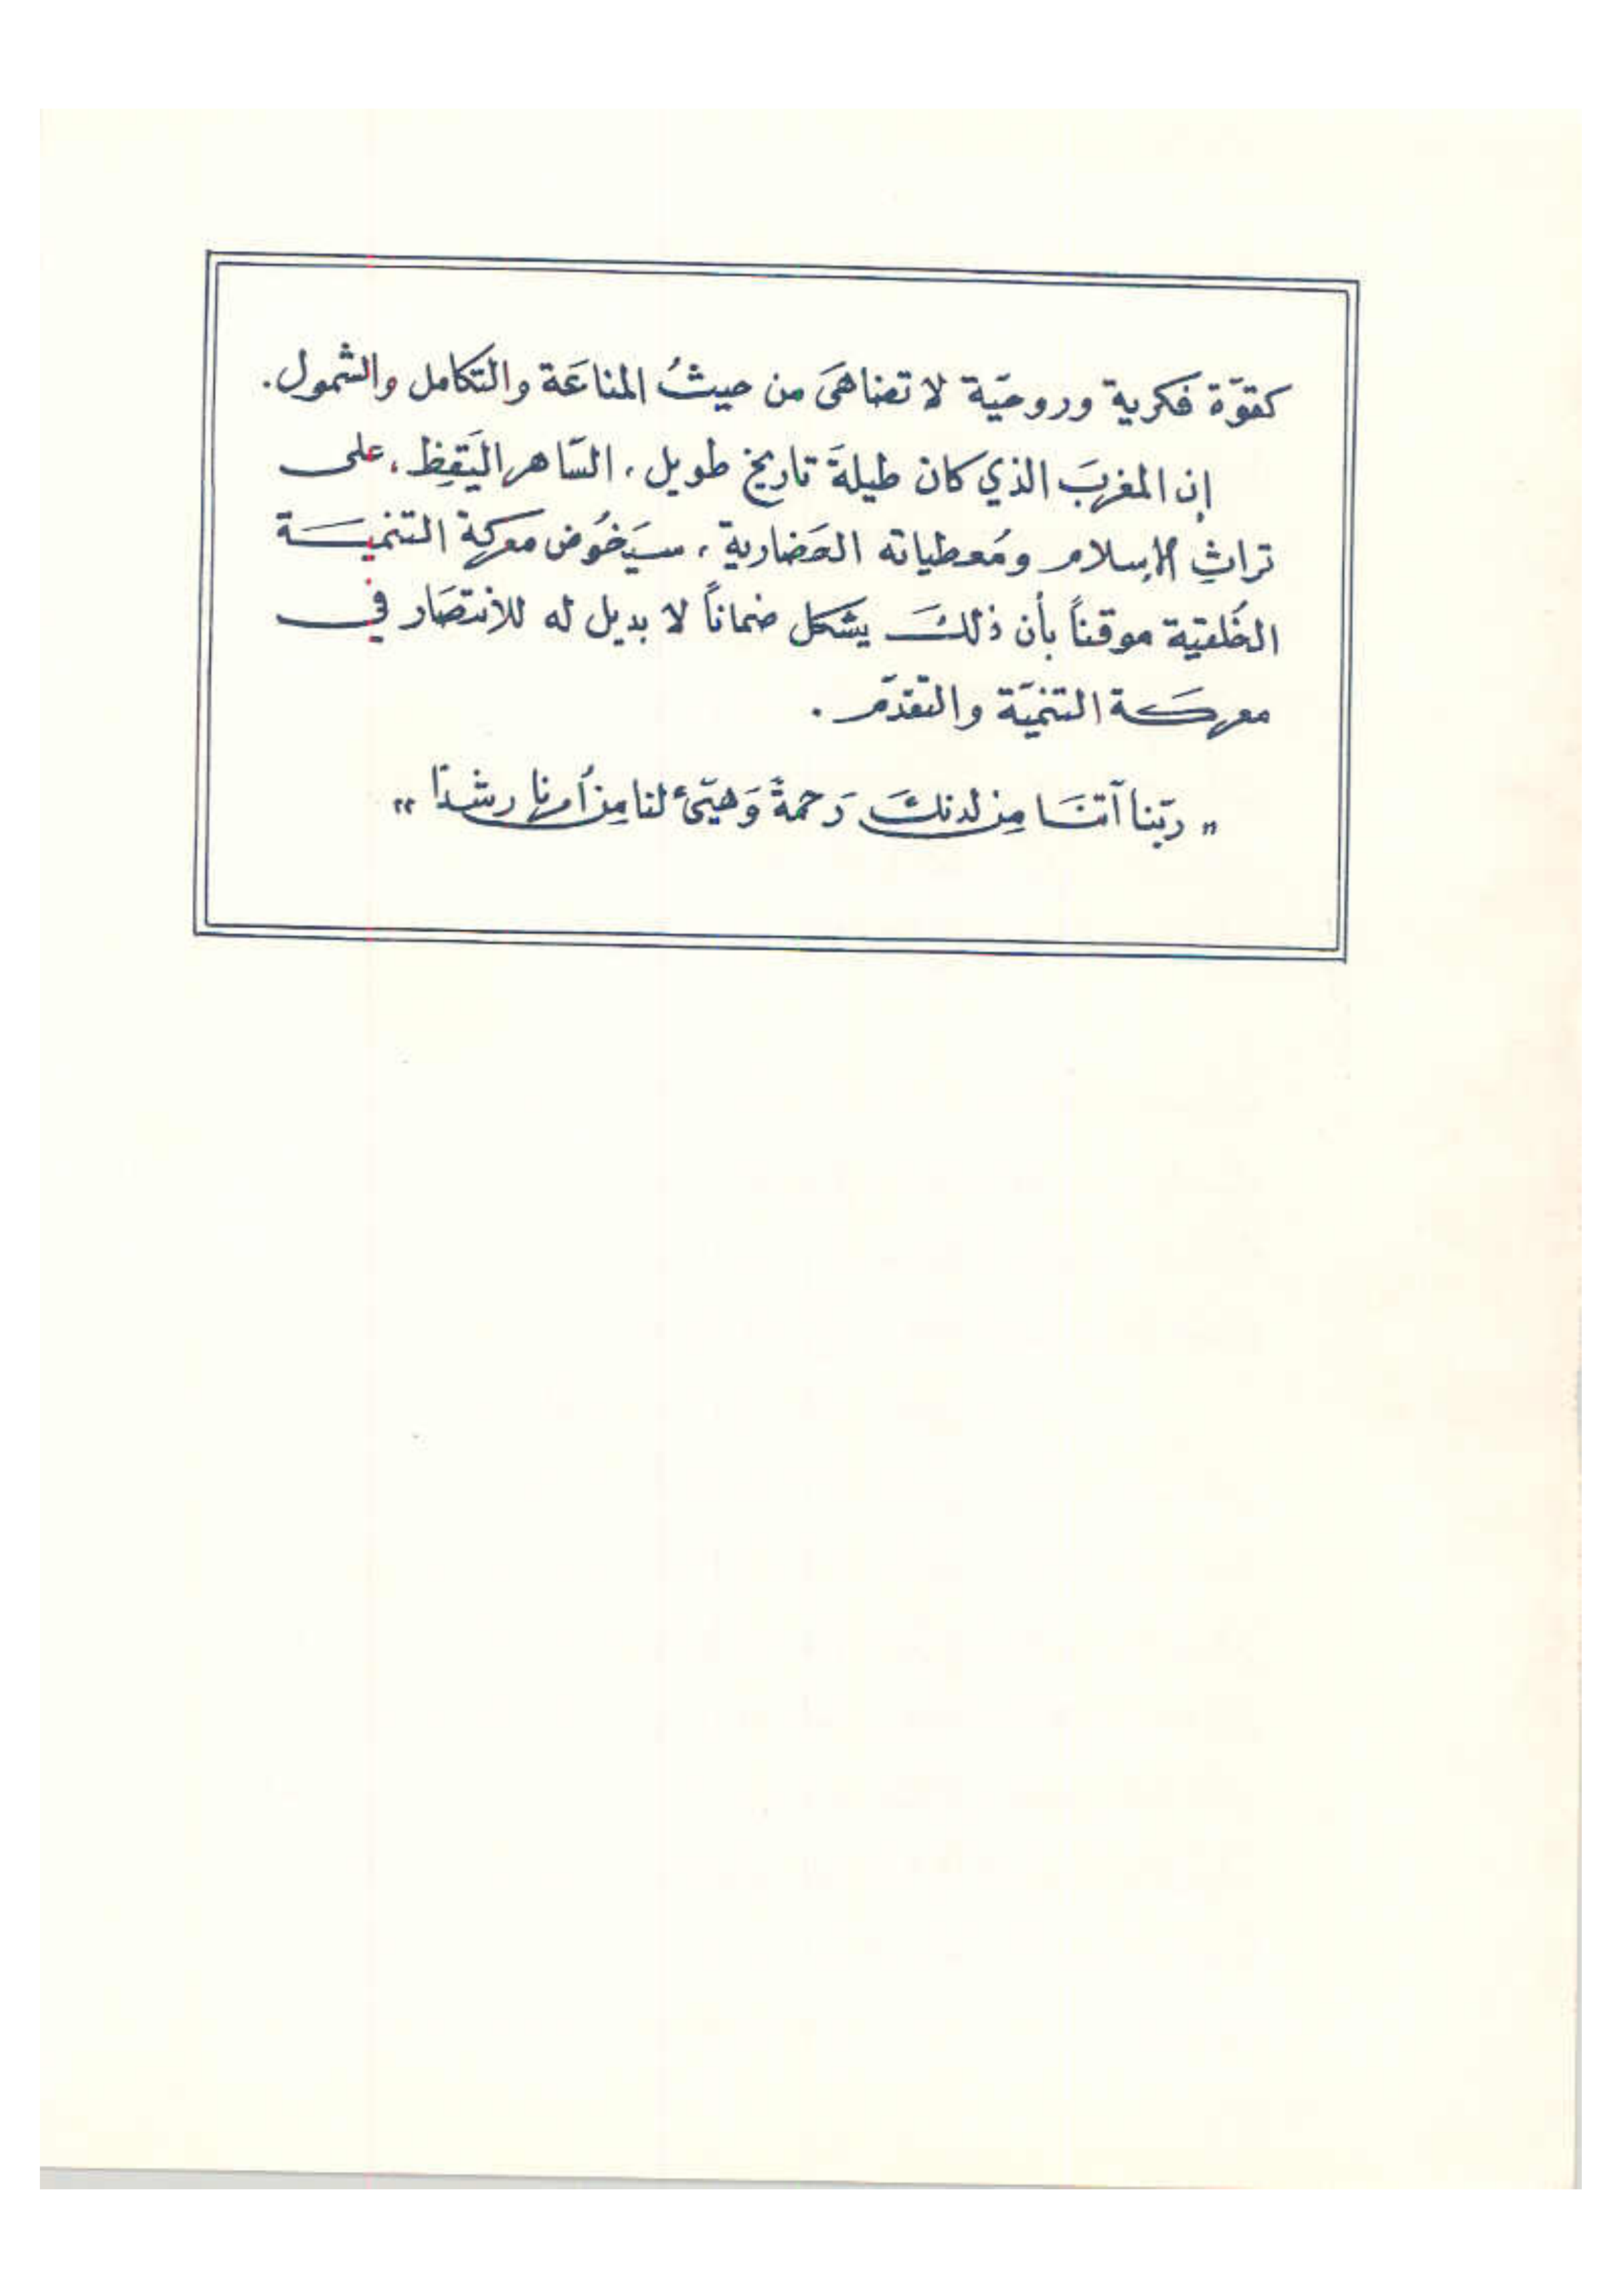 كقوّة فكرية وروحيّة لا تضاهىَ من حيثُ المناعَة والتكامل والشّمول.
إن المغربَ الذي كان طيلةَ تاريخ طويل، السّاهر اليَقِظ، على
تراثِ الإسلام ومُعطياته الحَضارية، سيَخُوض معركة التنميـة
الخُلقيّة موقناً بأن ذلكَ يشَكل ضماناً لا بديل له للانتصَار في
معركَة التنميَة والتّقدّم.
„ ربّنا آتنَا مِن لدنكَ رَحمةً وَهيّئ لنا مِن أمرنا رشدًا “